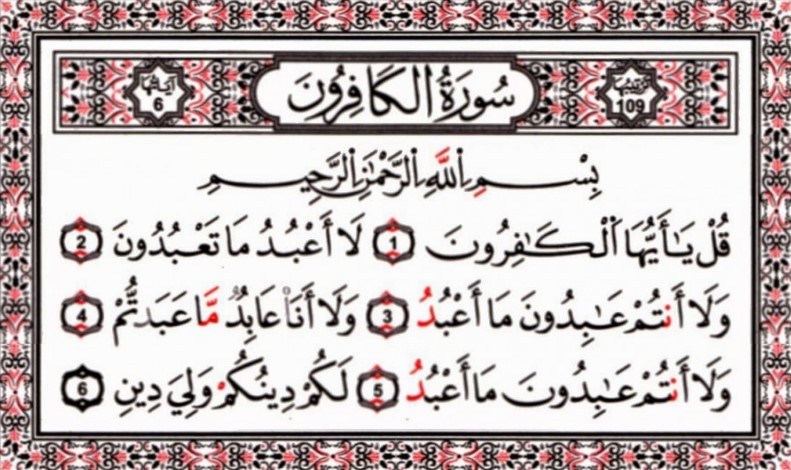 آياتها 6
سُورَةُ الْكَافِرُونَ
ترتيبها 109
بِسْمِ اللَّهِ الرَّحْمَٰنِ الرَّحِيمِ
قُلْ يَٰٓأَيُّهَا ٱلْكَٰفِرُونَ 1 لَآ أَعْبُدُ مَا تَعْبُدُونَ 2
وَلَآ أَنتُمْ عَٰبِدُونَ مَآ أَعْبُدُ 3 وَلَآ أَنَا۠ عَابِدٌ مَّا عَبَدتُّمْ 4
وَلَآ أَنتُمْ عَٰبِدُونَ مَآ أَعْبُدُ 5 لَكُمْ دِينُكُمْ وَلِيَ دِينِ 6